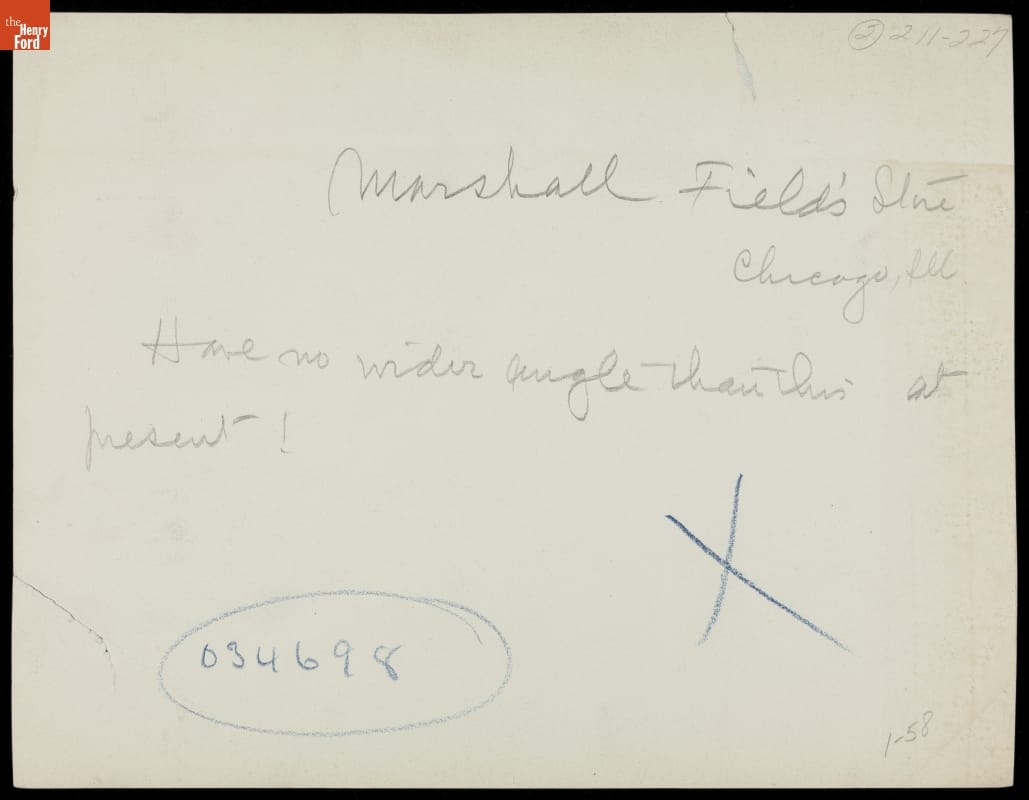 the
Henry
Ford
② 211-227
Marshall Field's Store
Chicago, Ill
Have no wider angle than this at
present!
034698
1-58